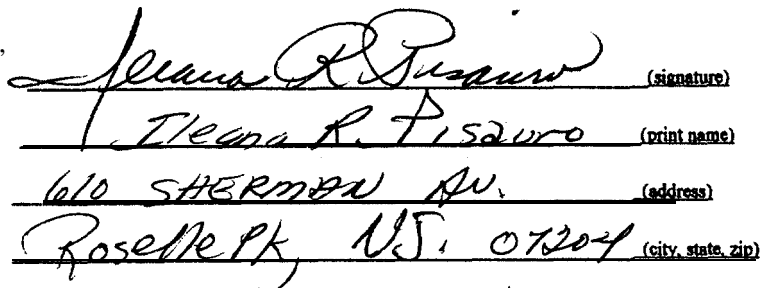 Ileana R. Pisauro (signature)
Ileana R. Pisauro (print name)
610 SHERMAN AV. (address)
Roselle Pk, NJ. 07204 (city, state, zip)